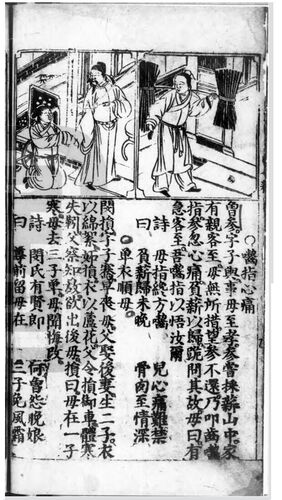 ○嚙指心痛
曾參字子輿事母至孝參曾採薪山中家
有親客至母無所措望參不還乃叩齒嚙
指參忽心痛負薪以歸跪問其故母曰有
急客至吾嚙指以悟汝爾
詩 母指終方嚙 兒心痛難禁
曰 負薪歸未晚 骨肉至情深
○單衣順母
閔損字子騫早喪母父娶後妻生二子衣
以綿絮妬損衣以蘆花父令損御車體寒
失靷父察知故欲出後母損曰母在一子
寒母去三子單母聞悔改
詩 閔氏有賢郎 何曾怨晚娘
曰 尊前留母在 三子免風霜